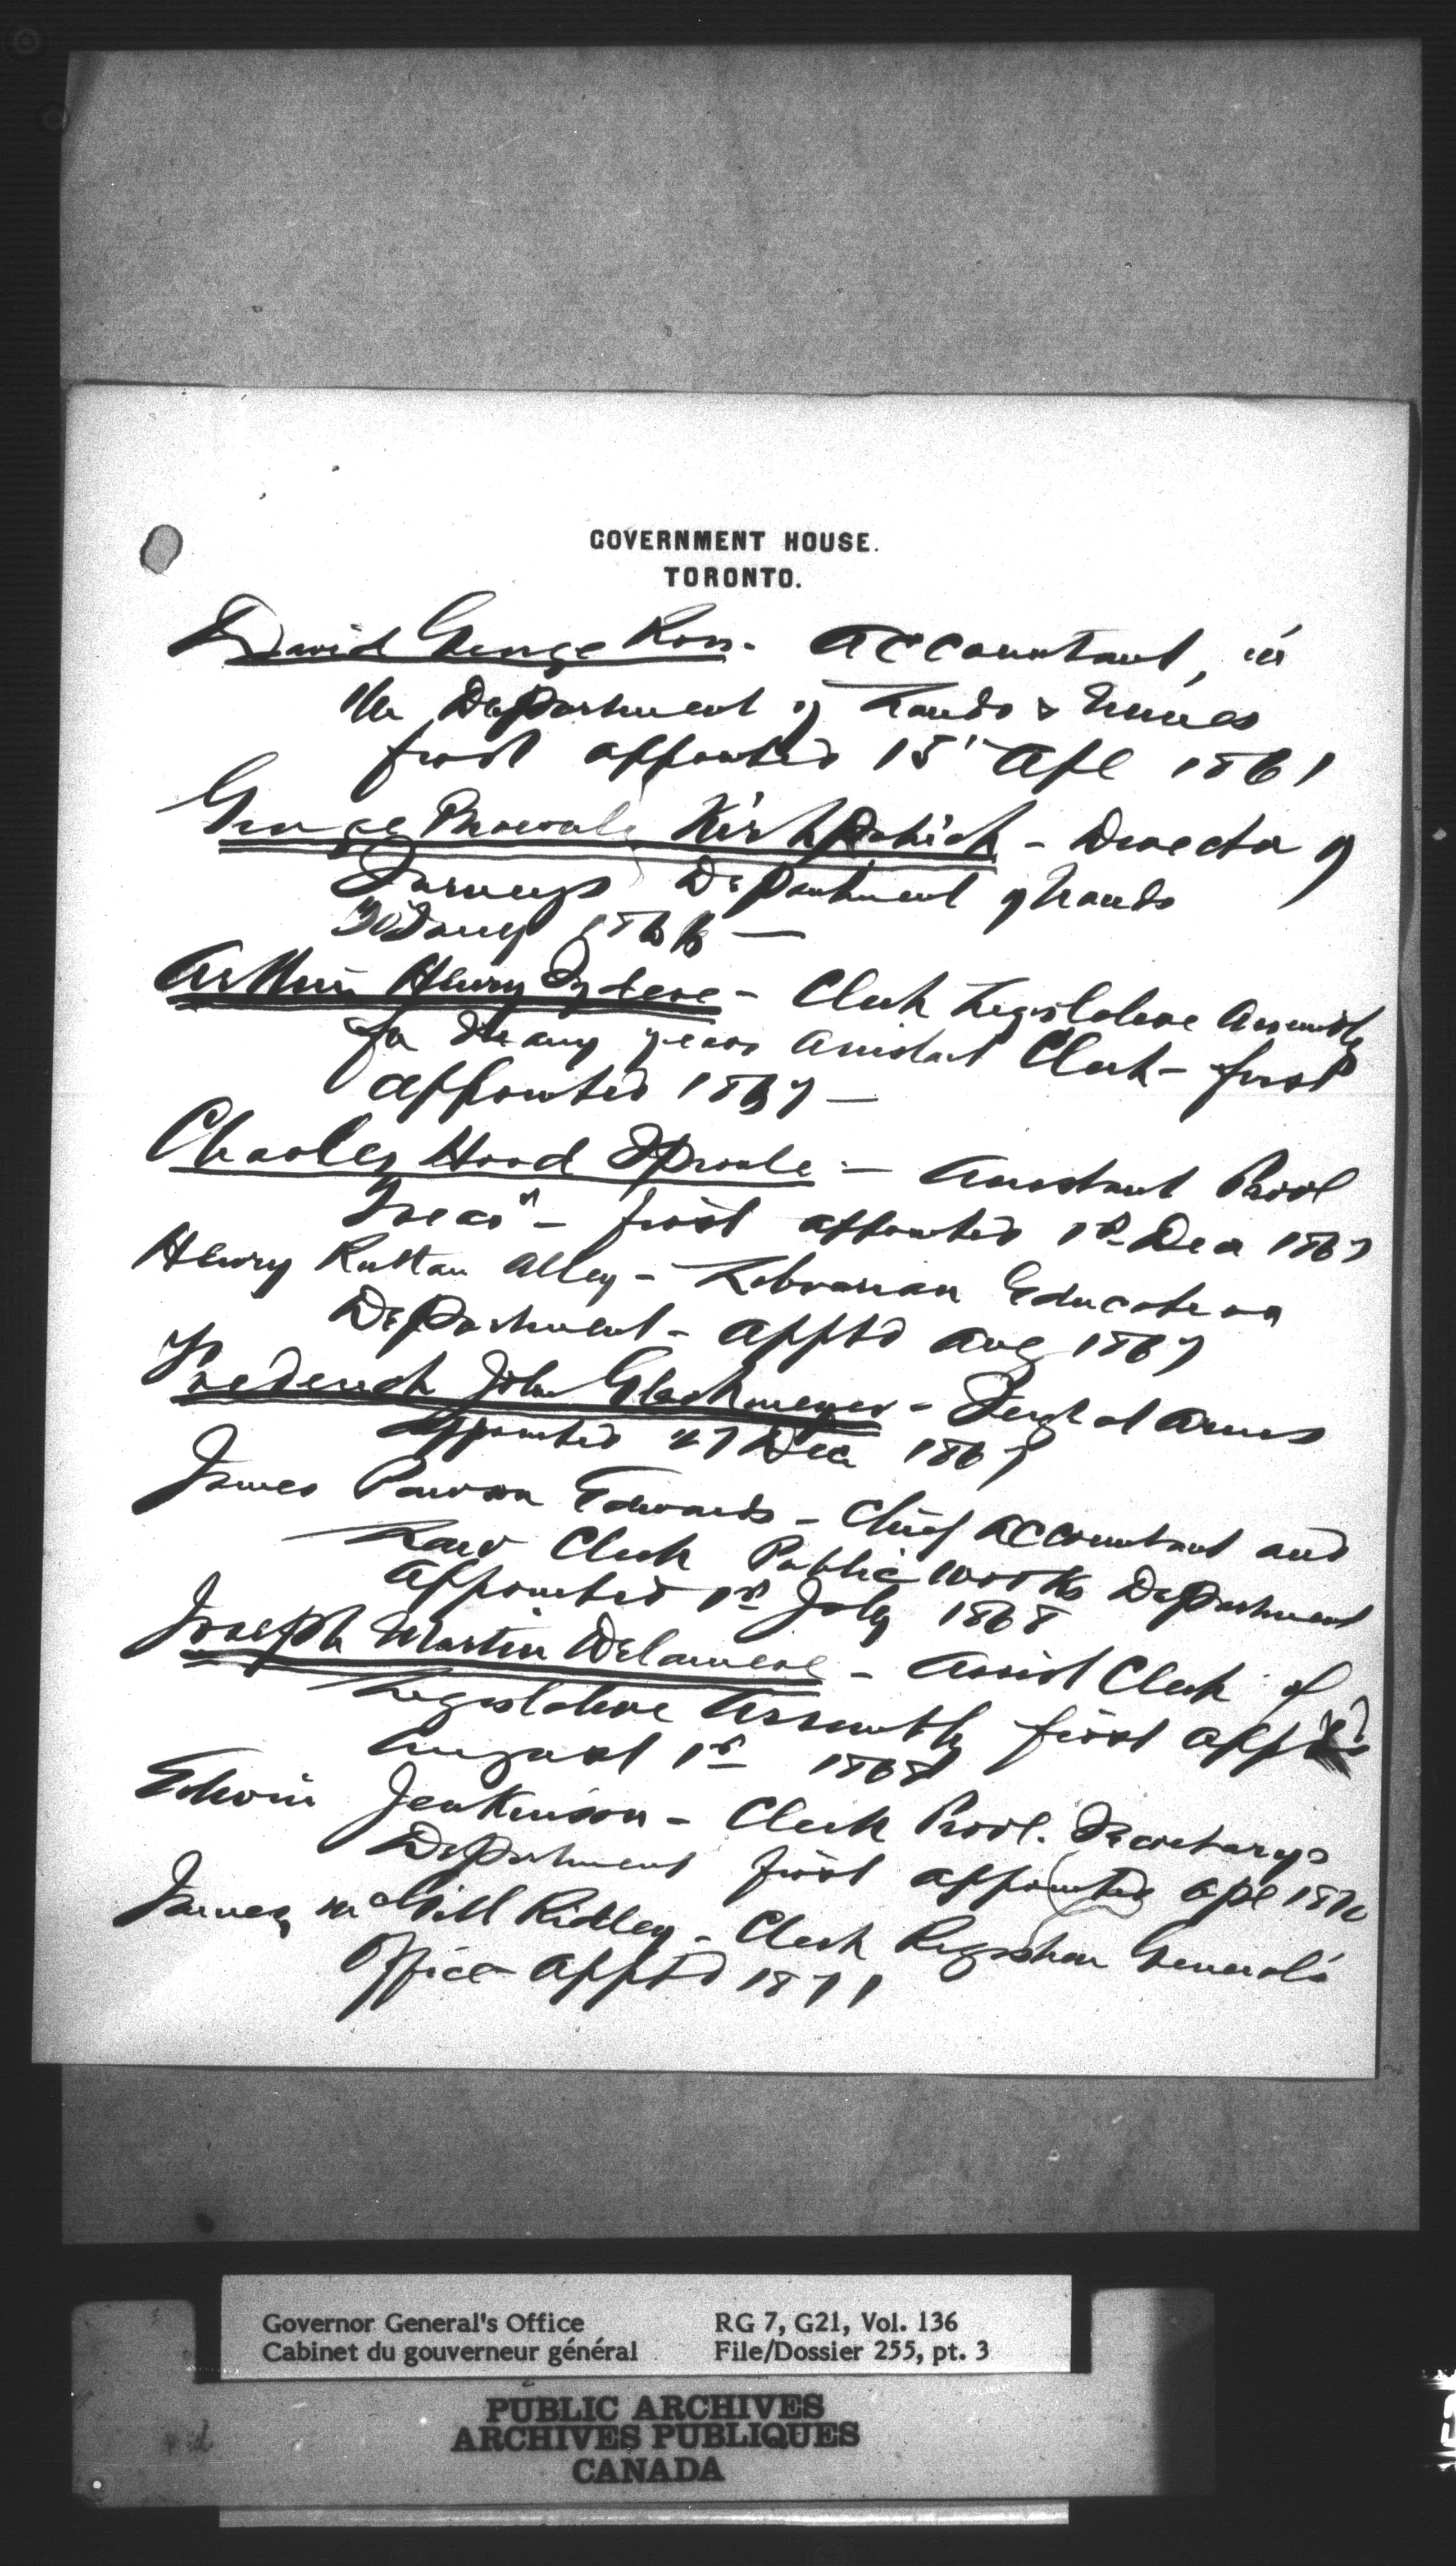 GOVERNMENT HOUSE.
TORONTO.
David George Ross. Accountant, in
the Department of Lands & Mines
first appointed 15 Apl 1861
George Kirkpatrick - Director of
Surveys Department of Lands
30 Jany 1866 —
Arthur Henry Sydere - Clerk Legislative Assembly
for many years Assistant Clerk - first
appointed 1867 —
Charles Hood Sproule - Assistant Provl
Treasr - first appointed 1st Dec 1867
Henry Ruttan Alley - Librarian Education
Department - apptd Aug 1867
Frederick John Glackmeyer - Sergt at Arms
appointed 27 Dec 1867
James Edwards - Chief Accountant and
Law Clerk Public Works Department
Appointed 1st July 1868
Joseph Martin Delamere - Assist Clerk of
Legislative Assembly first appd
August 1st 1868
Edwin Jenkinson - Clerk Provl. Secretarys
Department first appointed Apl
James McGill Ridley - Clerk Registrar General's
Office apptd 1871
Governor General's Office
Cabinet du gouverneur général
RG 7, G21, Vol. 136
File/Dossier 255, pt. 3
PUBLIC ARCHIVES
ARCHIVES PUBLIQUES
CANADA